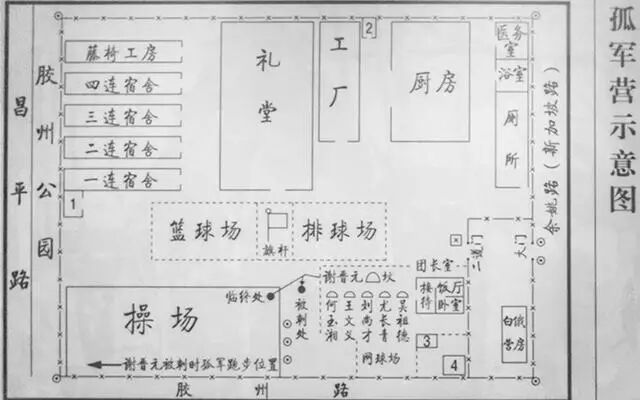 孤军营示意图
昌平路
胶州公园
余姚路(新加坡路)
胶州路
藤椅工房
四连宿舍
三连宿舍
二连宿舍
一连宿舍
1
礼堂
工厂
2
厨房
医务室
浴室
厕所
篮球场
旗杆
排球场
二道门
大门
团长室
接待
饭厅
卧室
谢晋元坟
何玉湘
王文义
刘尚才
尤长青
吴祖德
网球场
3
4
白俄营房
临终处
被刺处
操场
谢晋元被刺时孤军跑步位置